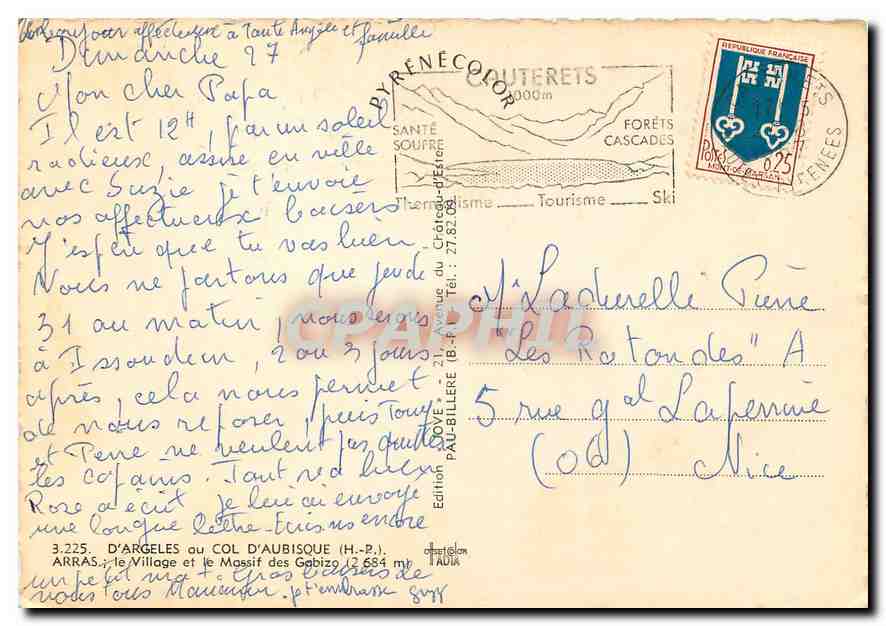 affectueux à Tante Angèle et famille
Dimanche 27
Mon cher Papa
Il est 12H, par un soleil
radieux, assise en ville
avec Suzie je t'envoie
nos affectueux baisers
J'espère que tu vas bien.
Nous ne partons que jeudi
31 au matin, nous serons
à Issoudun, 2 ou 3 jours
après, cela nous permet
de nous reposer, puis Tony
et Pierre ne veulent pas quitter
les copains. Tout va bien
Rose a écrit je lui ai envoyé
une longue lettre. Ecris nous encore
3.225. D'ARGELES au COL D'AUBISQUE (H.-P.).
ARRAS.; le Village et le Massif des Gabizo (2 684 m)
un petit mot. Gros baisers de
nous tous Maman. je t'embrasse Suzy
PYRÉNÉCOLOR
CAUTERETS
1000m
SANTÉ
SOUFRE
FORÊTS
CASCADES
Thermalisme Tourisme Ski
REPUBLIQUE FRANÇAISE
Postes 0,25
MONT-DE-MARSAN
PYRENEES
Edition "DOVE" - 21, Avenue du Château-d'Este
PAU-BILLERE (B.-P.) Tél. : 27.82.09
CPAPHIL
Mr Laderelle Pierre
"Les Rotondes" A
5 rue gal Laperrine
(06) Nice
offset color